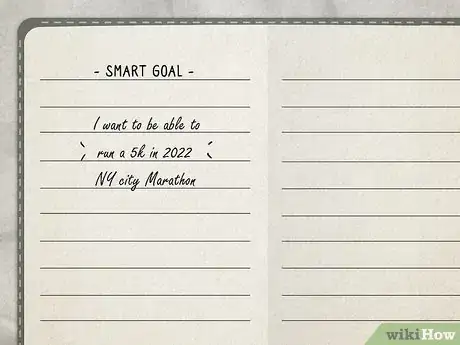 - SMART GOAL -
I want to be able to
run a 5k in 2022
NY city Marathon
wikiHow